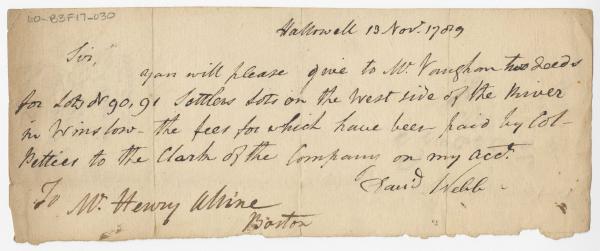 LO-B3F17-030
Hallowell 13 Nov.r 1789
Sir,
you will please give to Mr. Vaughan two deeds
for Lots No 90, 91 Settlers Lots on the West side of the River
in Winslow - the fees for which have been paid by Col-
Pettice to the Clark of the Company on my acct.
David Webb
To Mr. Henry Alline
Boston